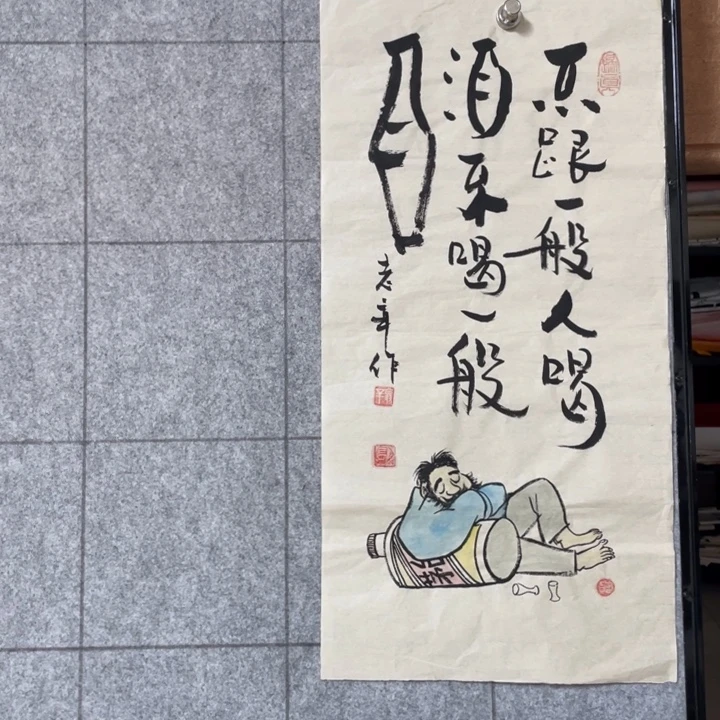 不跟一般人喝
酒不喝一般
老作
茅台